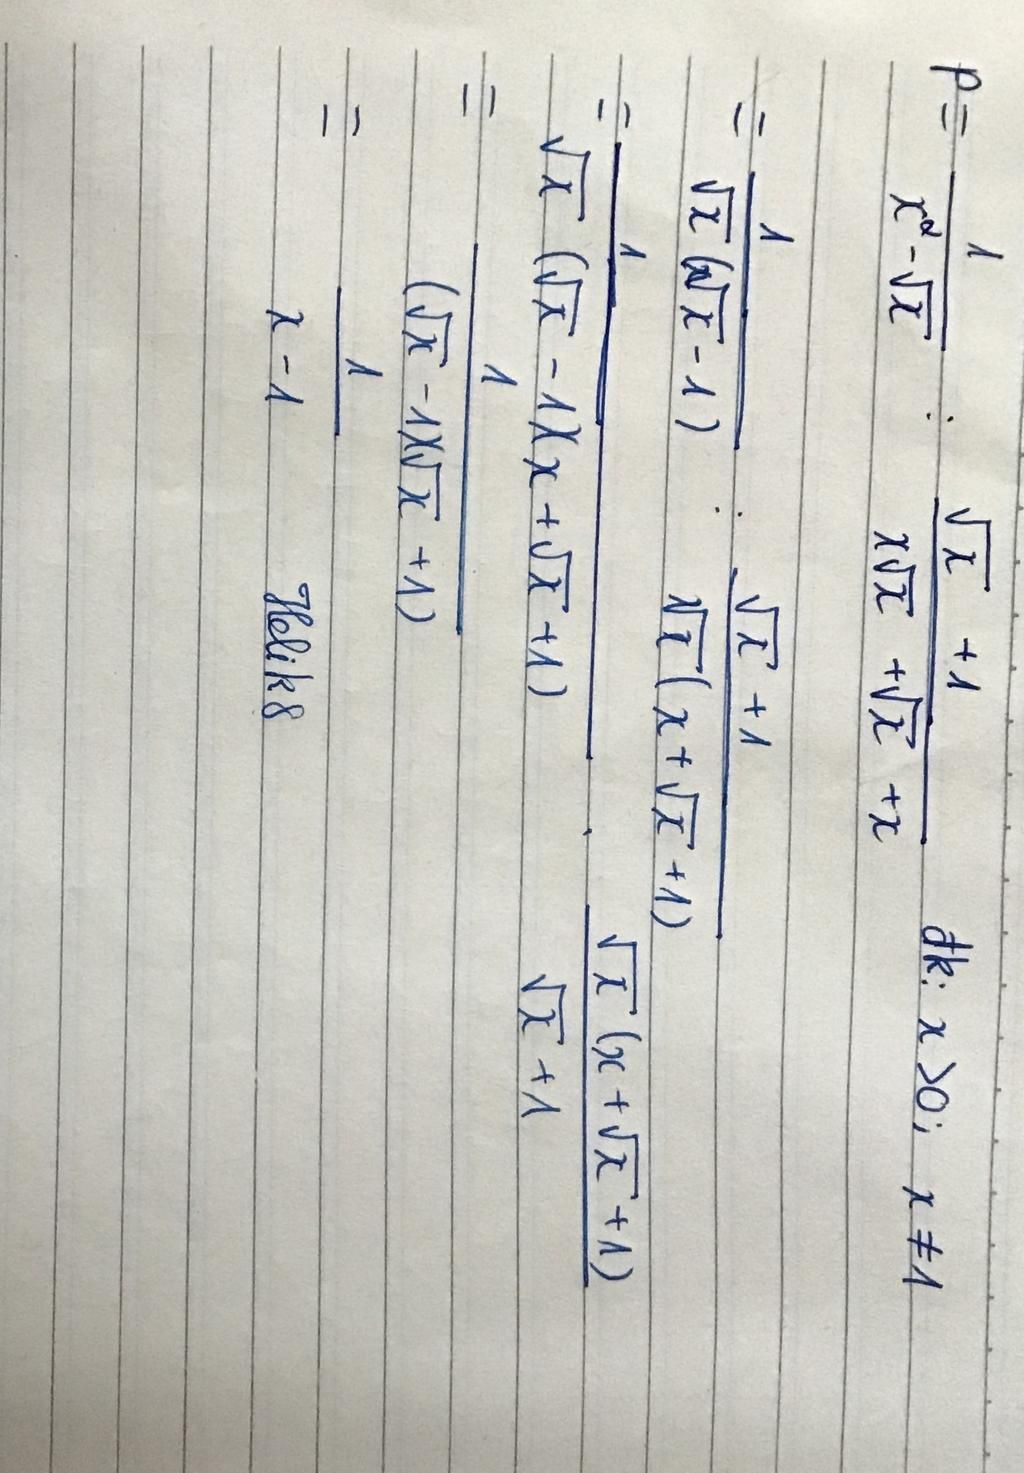 P = 1/(x² - √x) : (√x + 1)/(x√x + √x + x) đk: x > 0; x ≠ 1
= 1/(√x (x√x - 1)) : (√x + 1)/(√x (x + √x + 1))
= 1/(√x (√x - 1)(x + √x + 1)) . (√x (x + √x + 1))/(√x + 1)
= 1/((√x - 1)(√x + 1))
= 1/(x - 1) Helik8